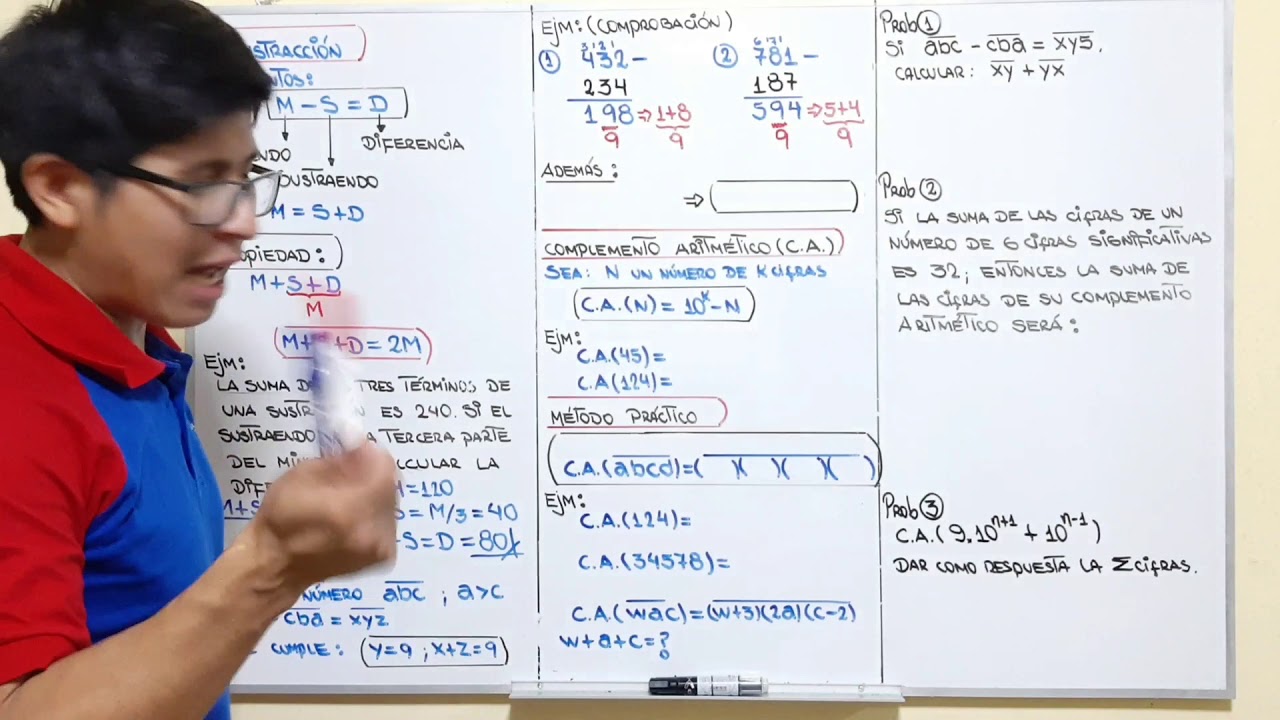 STRACCIÓN
NTOS:
M - S = D
NDO
DIFERENCIA
SUSTRAENDO
M = S+D
OPIEDAD:
M + S + D
M
M+ +D = 2M
EJM:
LA SUMA D TRES TÉRMINOS DE
UNA SUSTR N ES 240. SI EL
SUSTRAENDO A TERCERA PARTE
DEL MIN LCULAR LA
DIFE
M+S =120
S = M/3 = 40
-S = D = 80
NÚMERO abc ; a>c
cba = xyz
CUMPLE: Y=9 ; X+Z=9
EJM: (COMPROBACIÓN)
① 3 12 1
432 -
234
198 ⇒ 1+8
9 9
② 6 17 1
781 -
187
594 ⇒ 5+4
9 9
ADEMÁS:
⇒
COMPLEMENTO ARITMÉTICO (C.A.)
SEA: N UN NÚMERO DE K CIFRAS
C.A.(N) = 10^K - N
EJM:
C.A.(45)=
C.A(124)=
MÉTODO PRÁCTICO
C.A.(abcd)=( )( )( )( )
EJM:
C.A.(124)=
C.A.(34578)=
C.A.(wac)=(w+3)(2a)(c-2)
w+a+c=?
PROB ①
SI abc - cba = xy5.
CALCULAR: xy + yx
PROB ②
SI LA SUMA DE LAS CIFRAS DE UN
NÚMERO DE 6 CIFRAS SIGNIFICATIVAS
ES 32; ENTONCES LA SUMA DE
LAS CIFRAS DE SU COMPLEMENTO
ARITMÉTICO SERÁ:
PROB ③
C.A.(9.10^n+1 + 10^n-1)
DAR COMO RESPUESTA LA Σ CIFRAS.